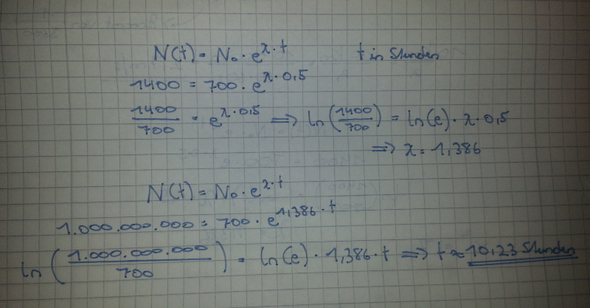 N(t) = N₀ · e^λ·t t in Stunden
1400 = 700 · e^λ·0,5
1400/700 = e^λ·0,5 ⟹ ln(1400/700) = ln(e) · λ · 0,5
⟹ λ = 1,386
N(t) = N₀ · e^λ·t
1.000.000.000 = 700 · e^1,386·t
ln(1.000.000.000/700) = ln(e) · 1,386 · t ⟹ t ≈ 10,23 Stunden